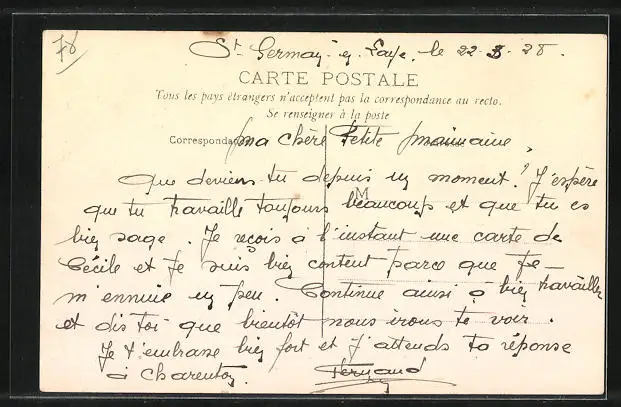 78
St Germain-en-Laye, le 22-3-28.
CARTE POSTALE
Tous les pays étrangers n'acceptent pas la correspondance au recto.
Se renseigner à la poste
Correspondance
Ma chère Petite
Que deviens-tu depuis un moment? J'espère
que tu travaille toujours beaucoup et que tu es
M
bien sage. Je reçois à l'instant une carte de
Cécile et je suis bien content parce que je
m'ennuie un peu. Continue ainsi à bien travailler
et dis toi que bientôt nous irons te voir.
Je t'embrasse bien fort et j'attends ta réponse
à Charenton. Fernand